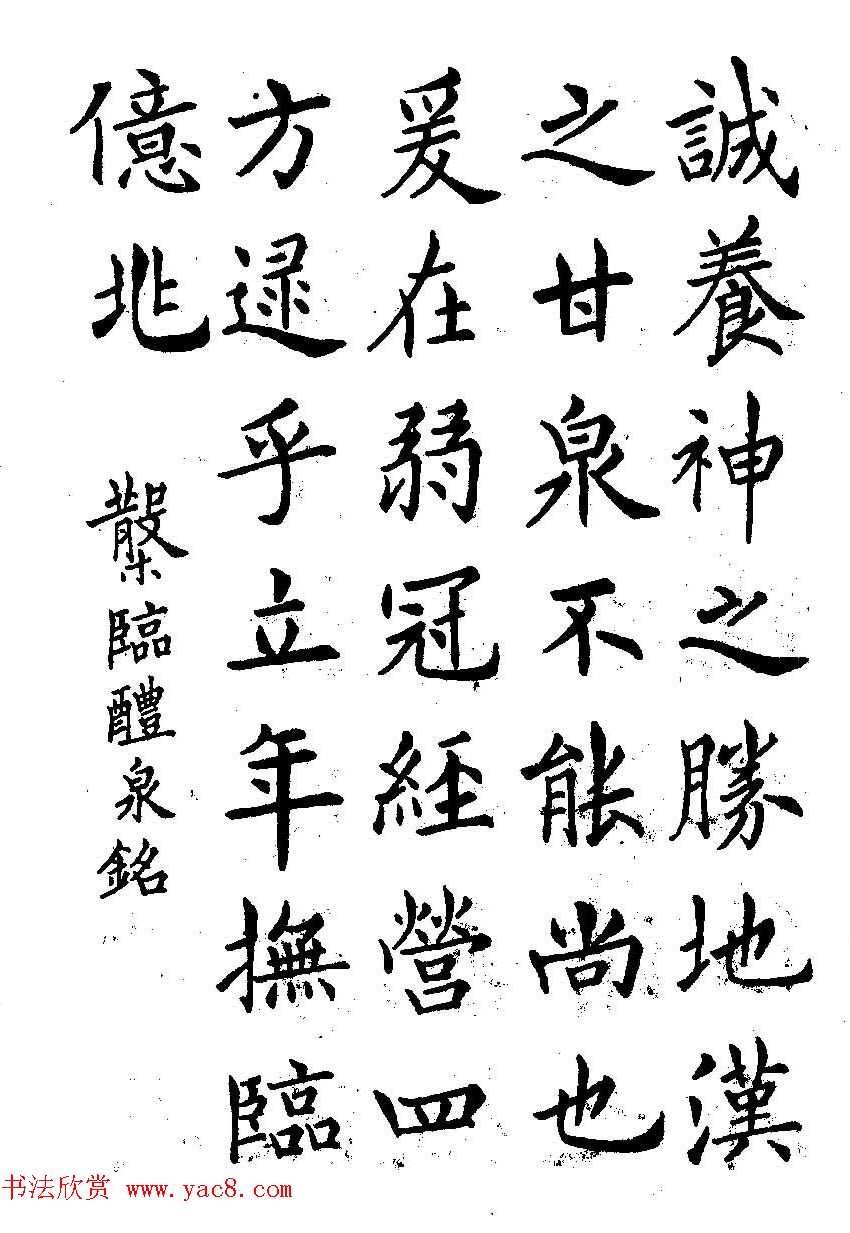 誠養神之勝地漢
之甘泉不能尚也
爰在弱冠經營四
方逮乎立年撫臨
億兆
臨醴泉銘
书法欣赏 www.yac8.com